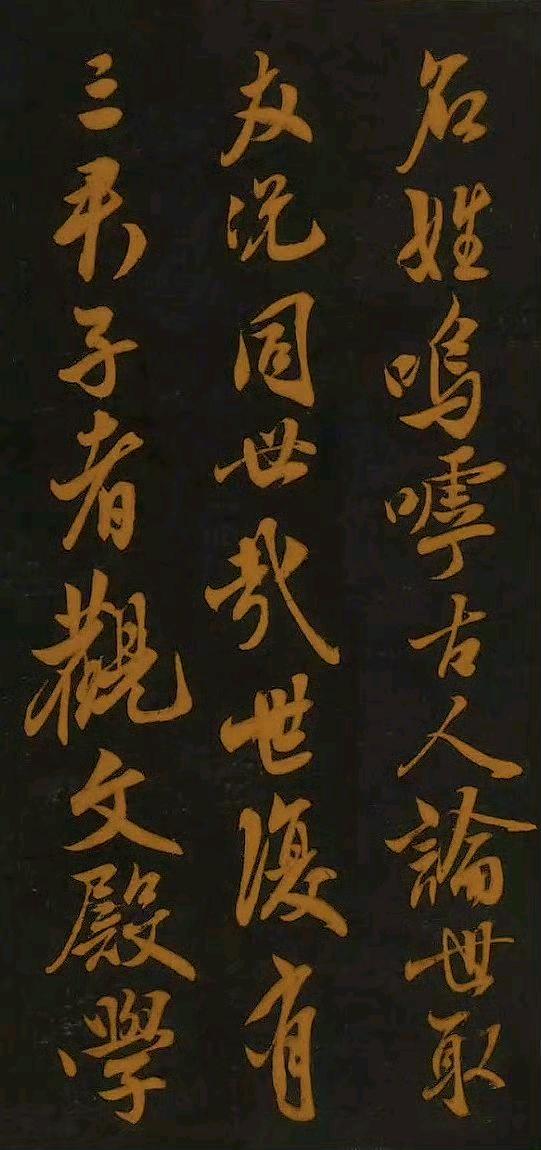 名姓嗚嘑古人論世取
友况同世哉世復有
三君子者觀文殿學